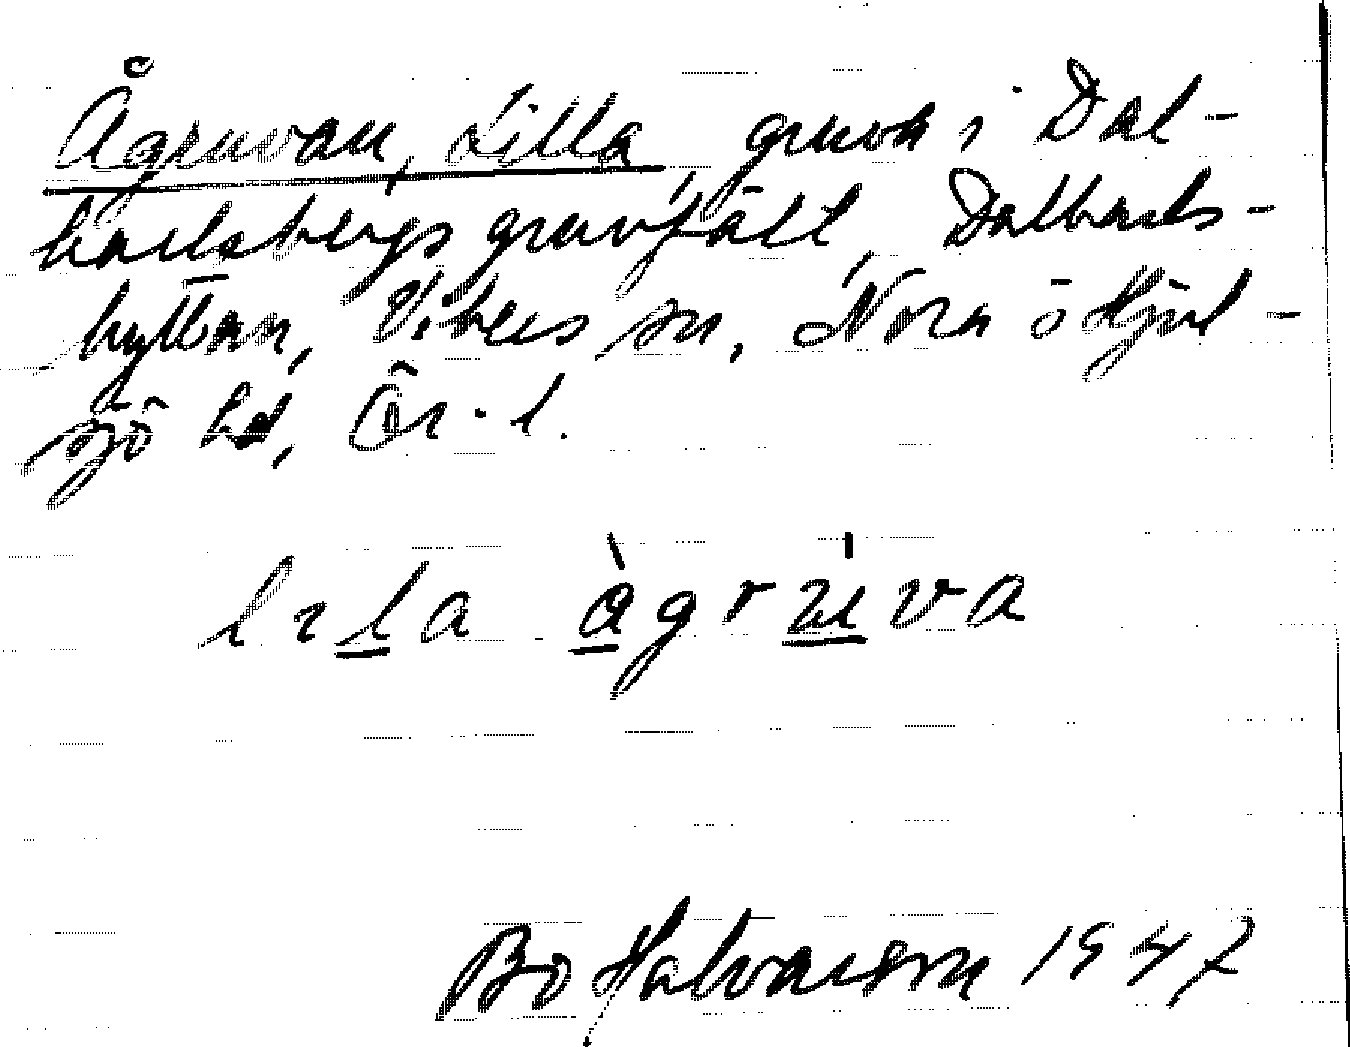 Ågruvan, Lilla gruva i Dal-
karlsbergs gruvfält, Dalkarls-
hyttan, Vikers sn, Nora o Hjul-
sjö hd, Ör. l.
lɩla àgrúva
Bo Halvarson 1947